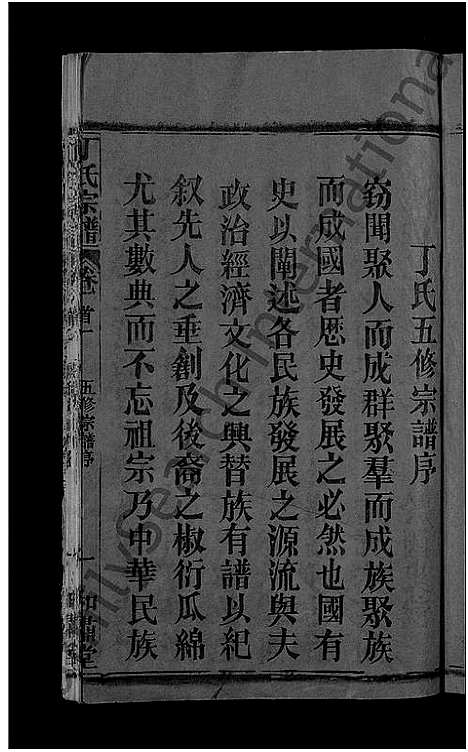 丁氏五修宗譜序
窃聞聚人而成群聚羣而成族聚族
而成國者厯史發展之必然也國有
史以闡述各民族發展之源流與夫
政治經濟文化之興替族有譜以紀
叙先人之垂創及後裔之椒衍瓜綿
尤其數典而不忘祖宗乃中華民族
丁氏宗譜
卷首
五修宗譜序
一